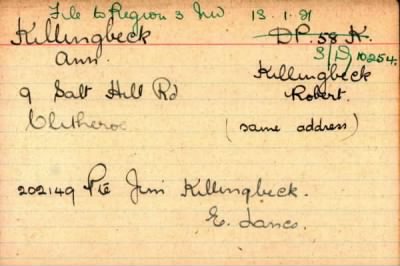 File to Region 3 NW 13.1.21
Killingbeck DP. 58 K.
S/D/10254.
Ann. Killingbeck
9 Salt Hill Rd Robert.
Clitheroe (same address)
202149 Pte Jim Killingbeck.
E. Lancs.